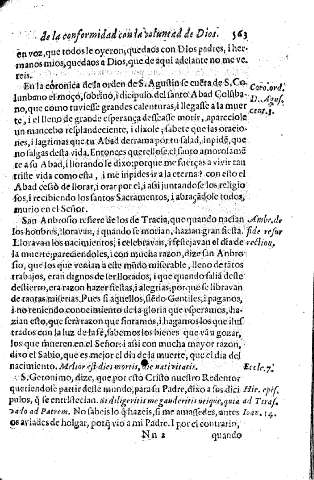 de la conformidad con la voluntad de Dios. 563
en voz, que todos le oyeron, quedaos con Dios padres, i her-
manos mios, quedaos a Dios, que de aqui adelante no me ve-
reis.
En la coronica de la orden de S. Agustin se cuēta de S. Co-
lumbano el moço, sobrino, i dicipulo del santo Abad Colūba-
no, que como tuviesse grandes calenturas, i llegasse a la muer
te, i el lleno de grande esperança dessease morir, apareciole
un mancebo resplandeciente, i dixole; sabete que las oracio-
nes, i lagrimas que tu Abad derrama por tu salud, inpidē, que
no salgas desta vida. Entonces quexose el santo amorosamē
te a su Abad, i llorando le dixo; porque me fuerças a vivir tan
triste vida como esta, i me inpides ir a la eterna? con esto el
Abad cessò de llorar, i orar por el, i assi juntandose los religio
sos, i recibiendo los santos Sacramentos, i abraçadole todos,
murio en el Señor.
San Anbrosio refiere de los de Tracia, que quando nacian
los honbres, lloravan, i quando se morian, hazian gran fiesta.
Lloravan los nacimientos; i celebravan, i festejavan el dia de
la muerte; pareciendoles, i con mucha razon, dize San Anbro-
sio, que los que venian a este mūdo miserable, lleno de tātos
trabajos, eran dignos de ser llorados, i que quando saliā deste
destierro, era razon hazer fiestas, i alegrias, porque se libravan
de tantas miserias. Pues si aquellos, siēdo Gentiles, i paganos,
i no teniendo conocimiento de la gloria que esperamos, ha-
zian esto, que serà razon que sintamos, i hagamos los que ilus
trados con la luz de la fe, sabemos los bienes que vā a gozar,
los que mueren en el Señor? i assi con mucha mayor razon,
dixo el Sabio, que es mejor el dia de la muerte, que el dia del
nacimiento. Melior est dies mortis, die nativitatis.
S. Geronimo, dize, que por esto Cristo nuestro Redentor
queriendose partir deste mundo, para su Padre, dixo a sus dici
pulos, q̄ se entristecian. Si diligeritis me gauderitis utique, quia va
do ad Patrem. No sabeis lo q̄ hazeis, si me amassedes, antes
os aviades de holgar, potq̄ viò a mi Padre. I por el contrario,
Nn 2 quando
Coro. ord.
D. Agus.
cent. 1.
Ambr. de
fide resur
rection.
Eccle. 7.
Hier. epis.
ad Tiras.
Ioan. 14.